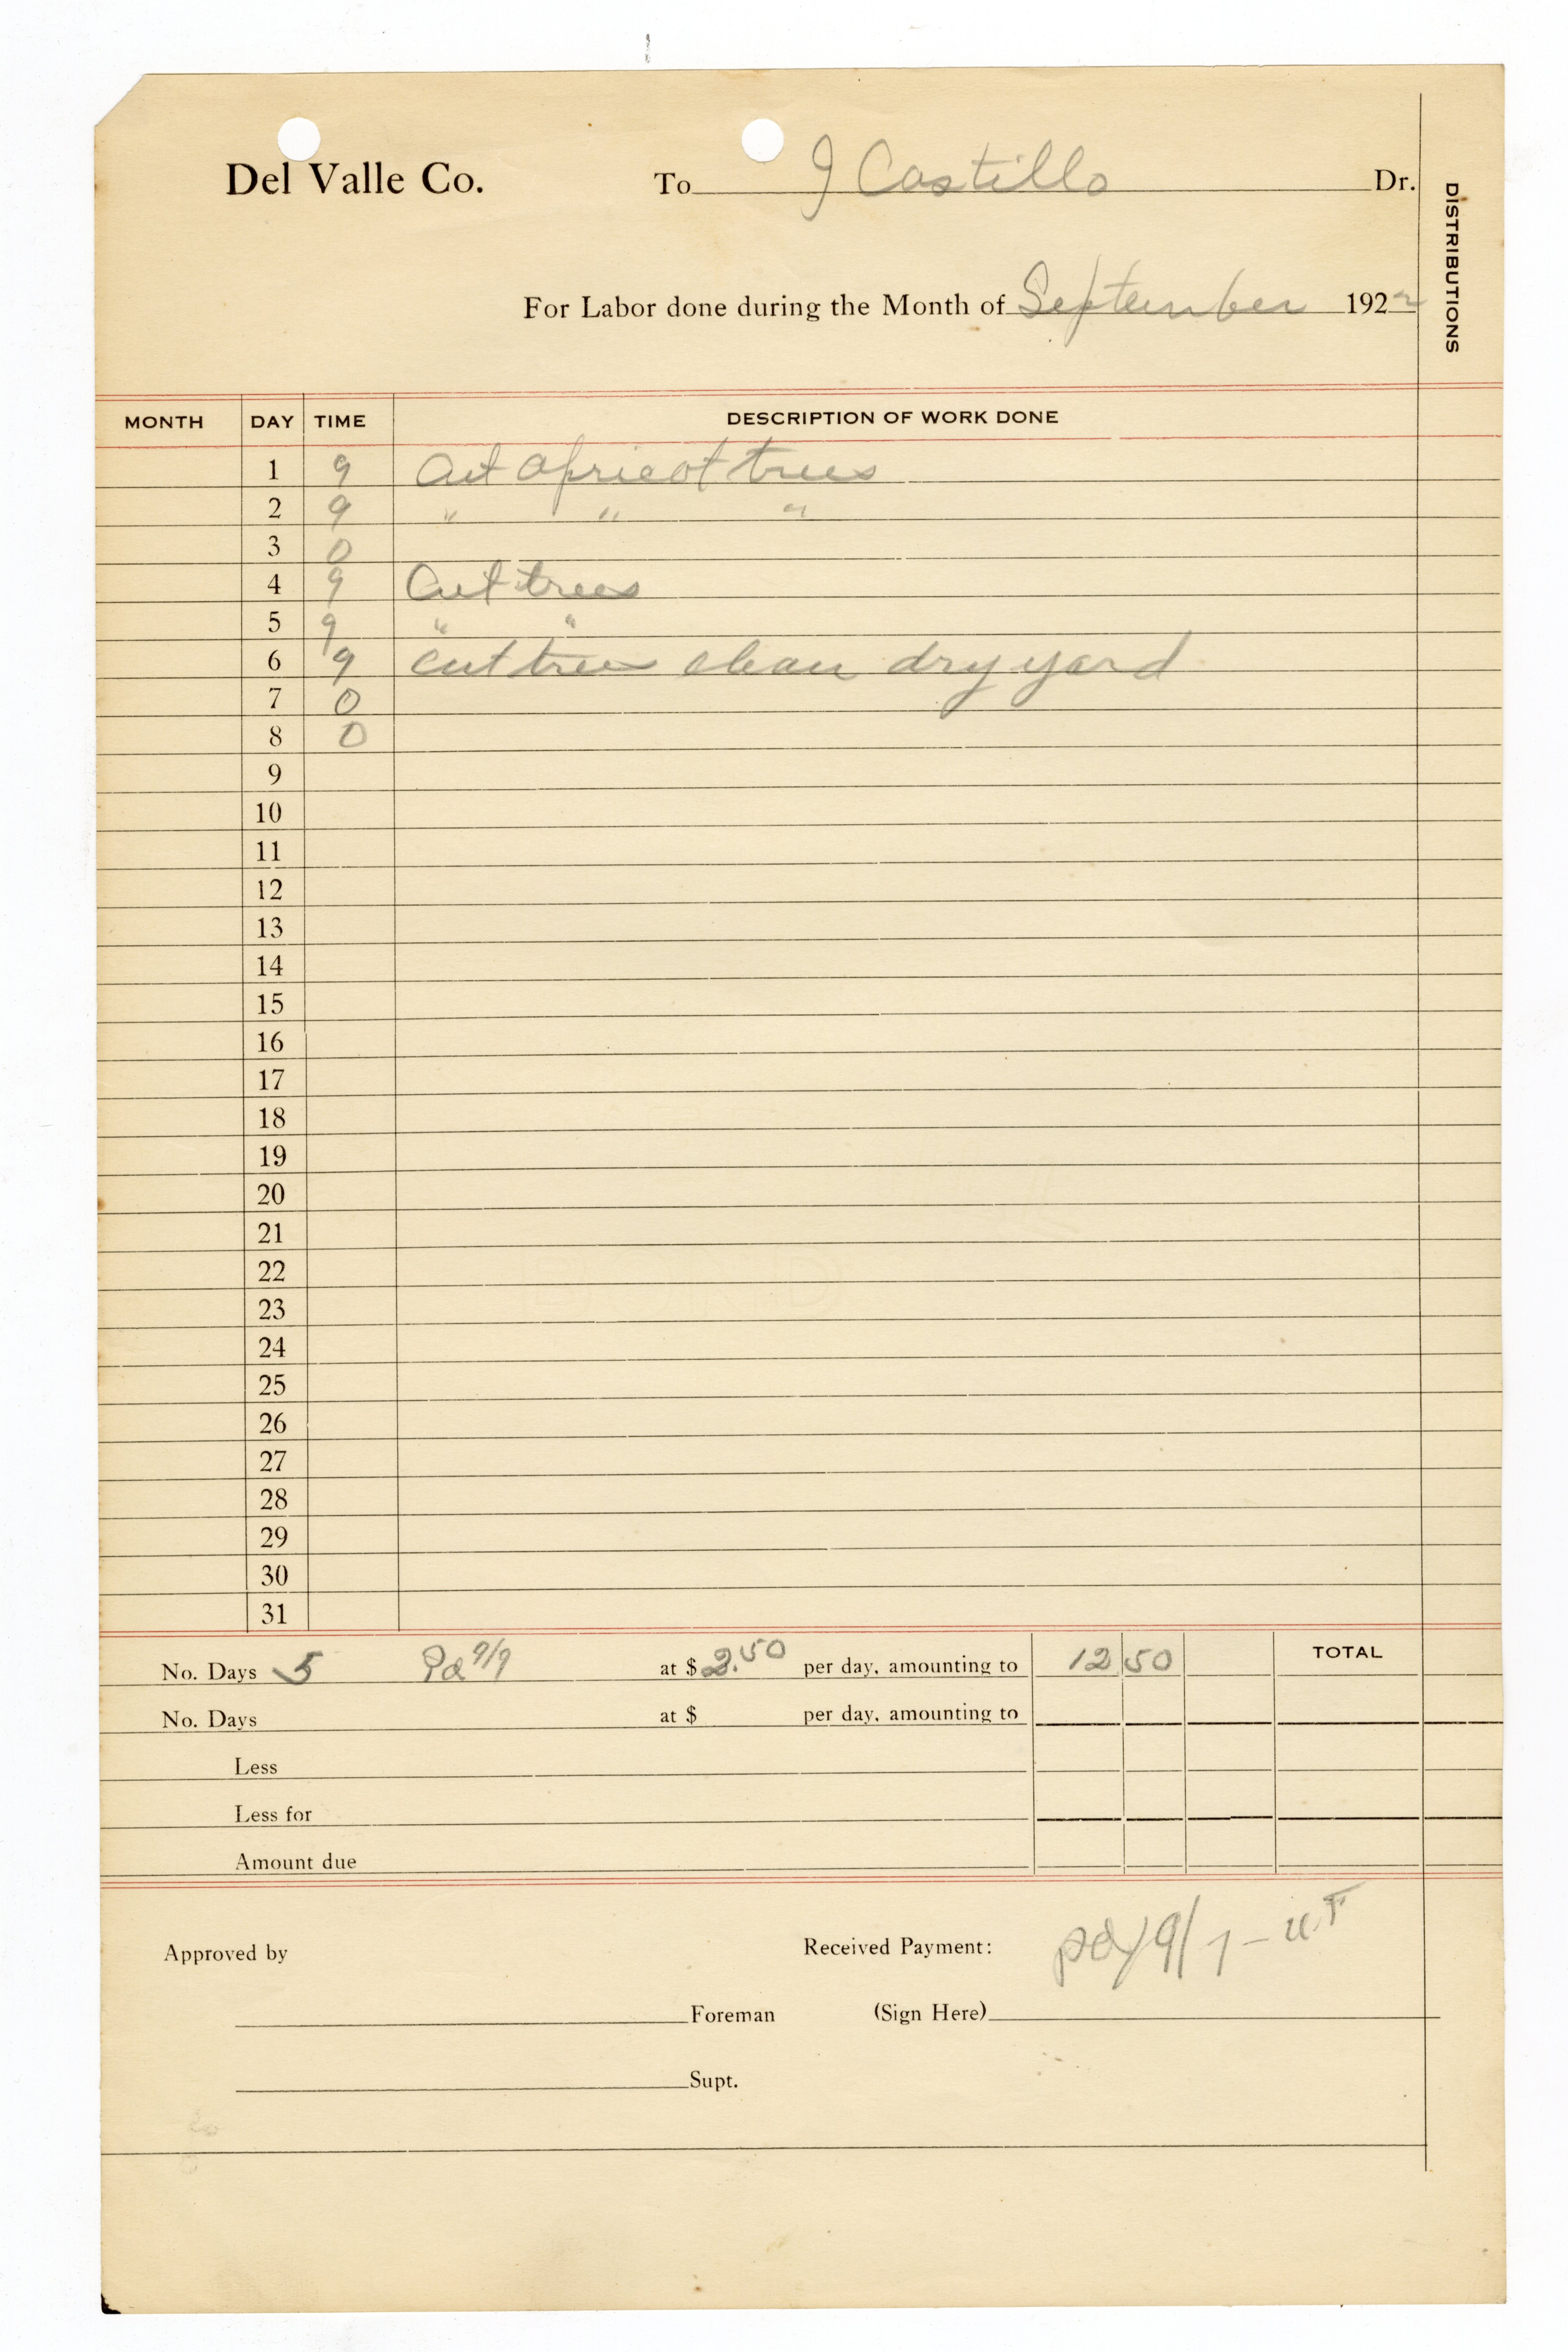 Del Valle Co. To J Castillo Dr.
DISTRIBUTIONS
For Labor done during the Month of September 1922
MONTH DAY TIME DESCRIPTION OF WORK DONE
1 9 Cut apricot trees
2 9 " " "
3 0
4 9 Cut trees
5 9 " "
6 9 cut trees clean dry yard
7 0
8 0
9
10
11
12
13
14
15
16
17
18
19
20
21
22
23
24
25
26
27
28
29
30
31
No. Days 5 Pd 9/9 at $ 2.50 per day, amounting to 12 50 TOTAL
No. Days at $ per day, amounting to
Less
Less for
Amount due
Approved by Received Payment: pd 9/9 -
Foreman (Sign Here)
Supt.